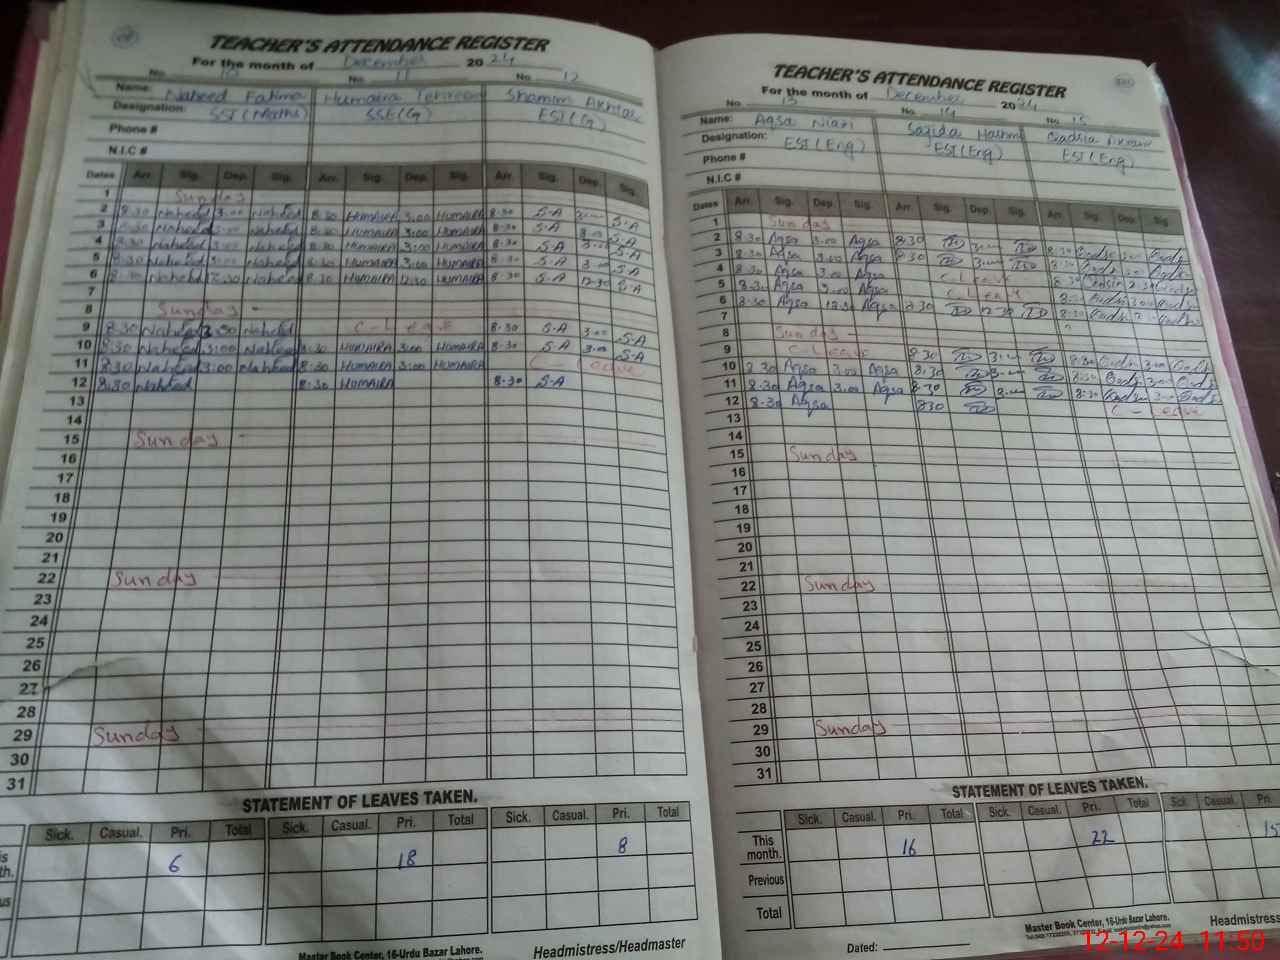 TEACHER'S ATTENDANCE REGISTER
For the month of December 2024
No. 10 No. 11 No. 12
Name: Naheed Fatima Humaira Shamim Akhtar
Designation: SST (Maths) SSE (G) EST (G)
Phone #
N.I.C #
Dates Arr. Sig. Dep. Sig. Arr. Sig. Dep. Sig. Arr. Sig. Dep. Sig.
1 Sunday
2 8.30 Naheed 3.00 Naheed 8.30 HUMAIRA 3.00 HUMAIRA 8.30 S-A 3.00 S-A
3 8.30 Naheed 3.00 Naheed 8.30 HUMAIRA 3:00 HUMAIRA 8.30 S-A 3.00 S-A
4 8.30 Naheed 3.00 Naheed 8.30 HUMAIRA 3:00 HUMAIRA 8.30 S-A 3.00 S-A
5 8.30 Naheed 3.00 Naheed 8.30 HUMAIRA 3.00 HUMAIRA 8.30 S-A 3.00 S-A
6 8.30 Naheed 12.30 Naheed 8.30 HUMAIRA 12:30 HUMAIRA 8.30 S-A 12.30 S-A
7
8 Sunday -
9 8:30 Naheed 3:00 Naheed C-Leave 8.30 S-A 3:00 S-A
10 8:30 Naheed 3:00 Naheed 8:30 HUMAIRA 3:00 HUMAIRA 8.30 S-A 3.00 S-A
11 8:30 Naheed 3:00 Naheed 8:30 HUMAIRA 3:00 HUMAIRA C-Leave
12 8:30 Naheed 8:30 HUMAIRA 8-30 S-A
13
14
15 Sunday -
16
17
18
19
20
21
22 Sunday
23
24
25
26
27
28
29 Sunday
30
31
STATEMENT OF LEAVES TAKEN.
Sick. Casual. Pri. Total Sick. Casual. Pri. Total Sick. Casual. Pri. Total
6 18 8
Master Book Center, 16-Urdu Bazar Lahore. Headmistress/Headmaster
TEACHER'S ATTENDANCE REGISTER
For the month of December 2024
No. 13 No. 14 No. 15
Name: Aqsa Niazi Sajida Qadsia
Designation: EST (Eng) EST (Eng) EST (Eng)
Phone #
N.I.C #
Dates Arr. Sig. Dep. Sig. Arr. Sig. Dep. Sig. Arr. Sig. Dep. Sig.
1 Sunday
2 8.30 Aqsa 3.00 Aqsa 8.30 3.00 8.30
3 8.30 Aqsa 3.00 Aqsa 8.30 3.00 8.30
4 8.30 Aqsa 3.00 Aqsa C-Leave 8.30
5 8.30 Aqsa 3.00 Aqsa C-Leave 8.30 3.00
6 8.30 Aqsa 12.30 Aqsa 8.30 12.30 8.30
7
8 Sunday -
9 C-Leave 8.30 3.00 8.30 3.00
10 8.30 Aqsa 3.00 Aqsa 8.30 3.00 8.30 3.00
11 8.30 Aqsa 3.00 Aqsa 8.30 3.00 8.30 3.00
12 8.30 Aqsa 830 C-Leave
13
14
15 Sunday
16
17
18
19
20
21
22 Sunday
23
24
25
26
27
28
29 Sunday
30
31
STATEMENT OF LEAVES TAKEN.
Sick. Casual. Pri. Total Sick. Casual. Pri. Total Sick. Casual. Pri.
This month. 16 22
Previous
Total
Master Book Center, 16-Urdu Bazar Lahore.
Dated: Headmistress
12-12-24 11:50